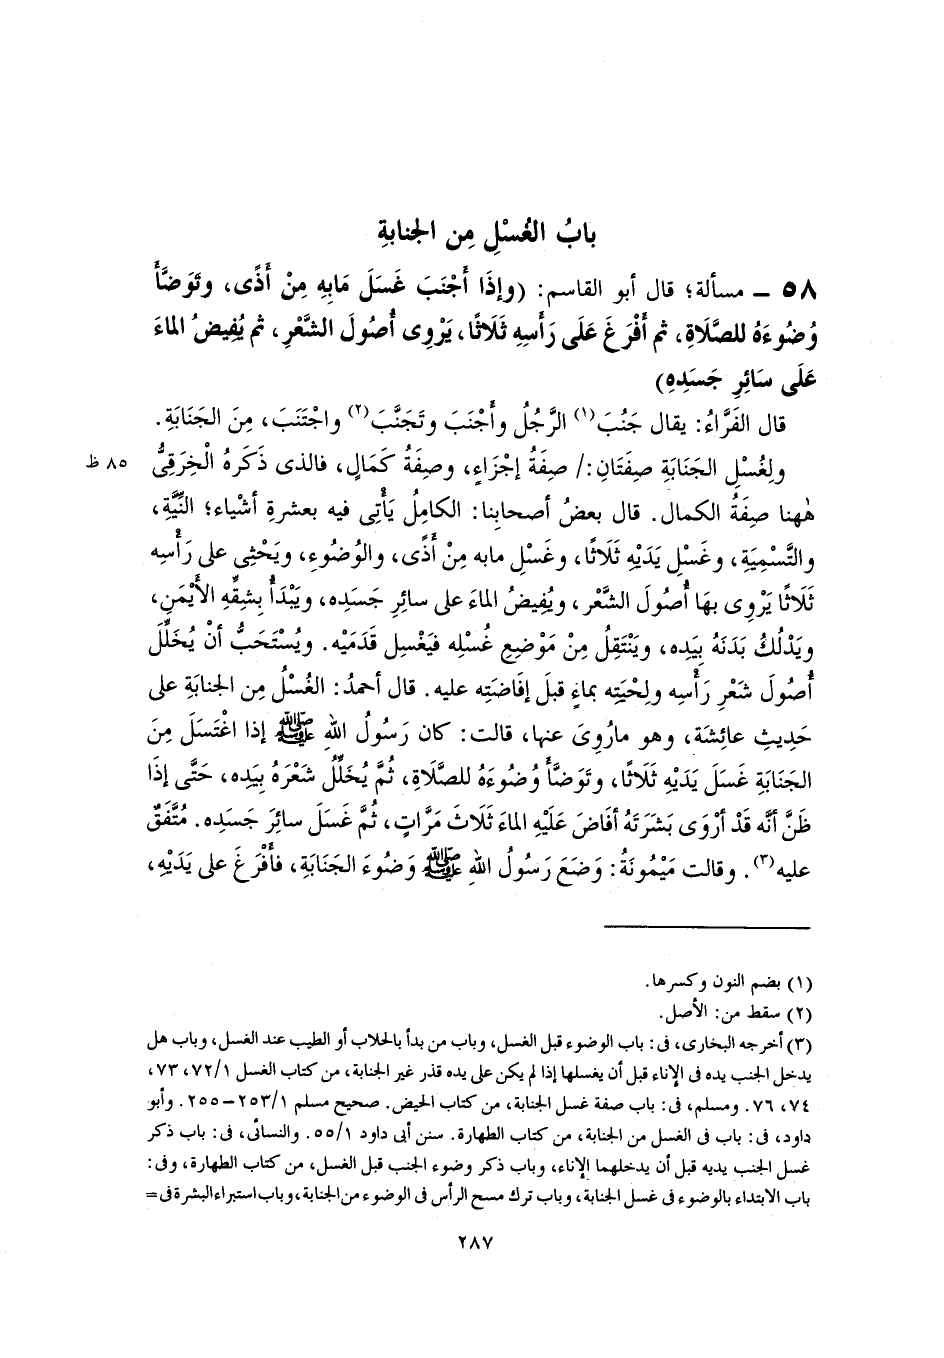 بابُ الغُسْلِ مِن الجنابةِ
٥٨ – مسألة؛ قال أبو القاسم: (وإذَا أَجْنَبَ غَسَلَ مَابِهِ مِنْ أَذًى، وتَوَضَّأَ
وُضُوءَهُ للصَّلَاةِ، ثم أَفْرَغَ عَلَى رَأْسِهِ ثَلَاثًا، يَرْوِى أُصُولَ الشَّعْرِ، ثم يُفِيضُ الماءَ
عَلَى سَائِرِ جَسَدِهِ)
قال الفَرَّاءُ: يقال جَنُبَ(١) الرَّجُلُ وأَجْنَبَ وتَجَنَّبَ(٢) واجْتَنَبَ، مِنَ الجَنَابَةِ.
ولِغُسْلِ الجَنَابَةِ صِفَتَانِ:/ صِفَةُ إجْزَاءٍ، وصِفَةُ كَمَالٍ، فالذى ذَكَرهُ الْخِرَقِىُّ ٨٥ ظ
هٰهنا صِفَةُ الكمال. قال بعضُ أصحابِنا: الكامِلُ يَأْتِى فيه بعشرةِ أشياء؛ النِّيَّةِ،
والتَّسْمِيَةِ، وغَسْلِ يَدَيْهِ ثَلَاثًا، وغَسْلِ مابه مِنْ أَذًى، والوُضُوءِ، ويَحْثِى على رَأْسِه
ثَلَاثًا يَرْوِى بهَا أُصُولَ الشَّعْرِ، ويُفِيضُ الماءَ على سائِرِ جَسَدِه، ويَبْدَأُ بِشِقِّهِ الأَيْمَنِ،
ويَدْلُكُ بَدَنَهُ بِيَدِه، ويَنْتَقِلُ مِنْ مَوْضِعِ غُسْلِه فيَغْسِل قَدَمَيْهِ. ويُسْتَحَبُّ أنْ يُخَلِّلَ
أُصُولَ شَعْرِ رَأْسِه ولِحْيَتِه بماءٍ قبلَ إفَاضَتِه عليه. قال أحمدُ: الغُسْلُ مِن الجنابةِ على
حَدِيثِ عائِشَة، وهو مارُوِىَ عنها، قالت: كان رَسُولُ اللهِ ﷺ إذا اغْتَسَلَ مِنَ
الجَنَابَةِ غَسَلَ يَدَيْهِ ثَلَاثًا، وتَوَضَّأَ وُضُوءَهُ للصَّلَاةِ، ثُمَّ يُخَلِّلُ شَعْرَهُ بِيَدِه، حَتَّى إذَا
ظَنَّ أنَّه قَدْ أرْوَى بَشَرَتَهُ أفَاضَ عَلَيْهِ الماءَ ثَلَاثَ مَرَّاتٍ، ثُمَّ غَسَلَ سائِرَ جَسَدِه. مُتَّفَقٌ
عليه(٣). وقالت مَيْمُونَةُ: وَضَعَ رَسُولُ اللهِ ﷺ وَضُوءَ الجَنَابَةِ، فأَفْرَغَ على يَدَيْهِ،
(١) بضم النون وكسرها.
(٢) سقط من: الأصل.
(٣) أخرجه البخارى، فى: باب الوضوء قبل الغسل، وباب من بدأ بالحلاب أو الطيب عند الغسل، وباب هل
يدخل الجنب يده فى الإناء قبل أن يغسلها إذا لم يكن على يده قذر غير الجنابة، من كتاب الغسل ٧٢/١، ٧٣،
٧٤، ٧٦. ومسلم، فى: باب صفة غسل الجنابة، من كتاب الحيض. صحيح مسلم ٢٥٣/١–٢٥٥. وأبو
داود، فى: باب فى الغسل من الجنابة، من كتاب الطهارة. سنن أبى داود ٥٥/١. والنسائى، فى: باب ذكر
غسل الجنب يديه قبل أن يدخلهما الإناء، وباب ذكر وضوء الجنب قبل الغسل، من كتاب الطهارة، وفى:
باب الابتداء بالوضوء فى غسل الجنابة، وباب ترك مسح الرأس فى الوضوء من الجنابة، وباب استبراء البشرة فى =
٢٨٧